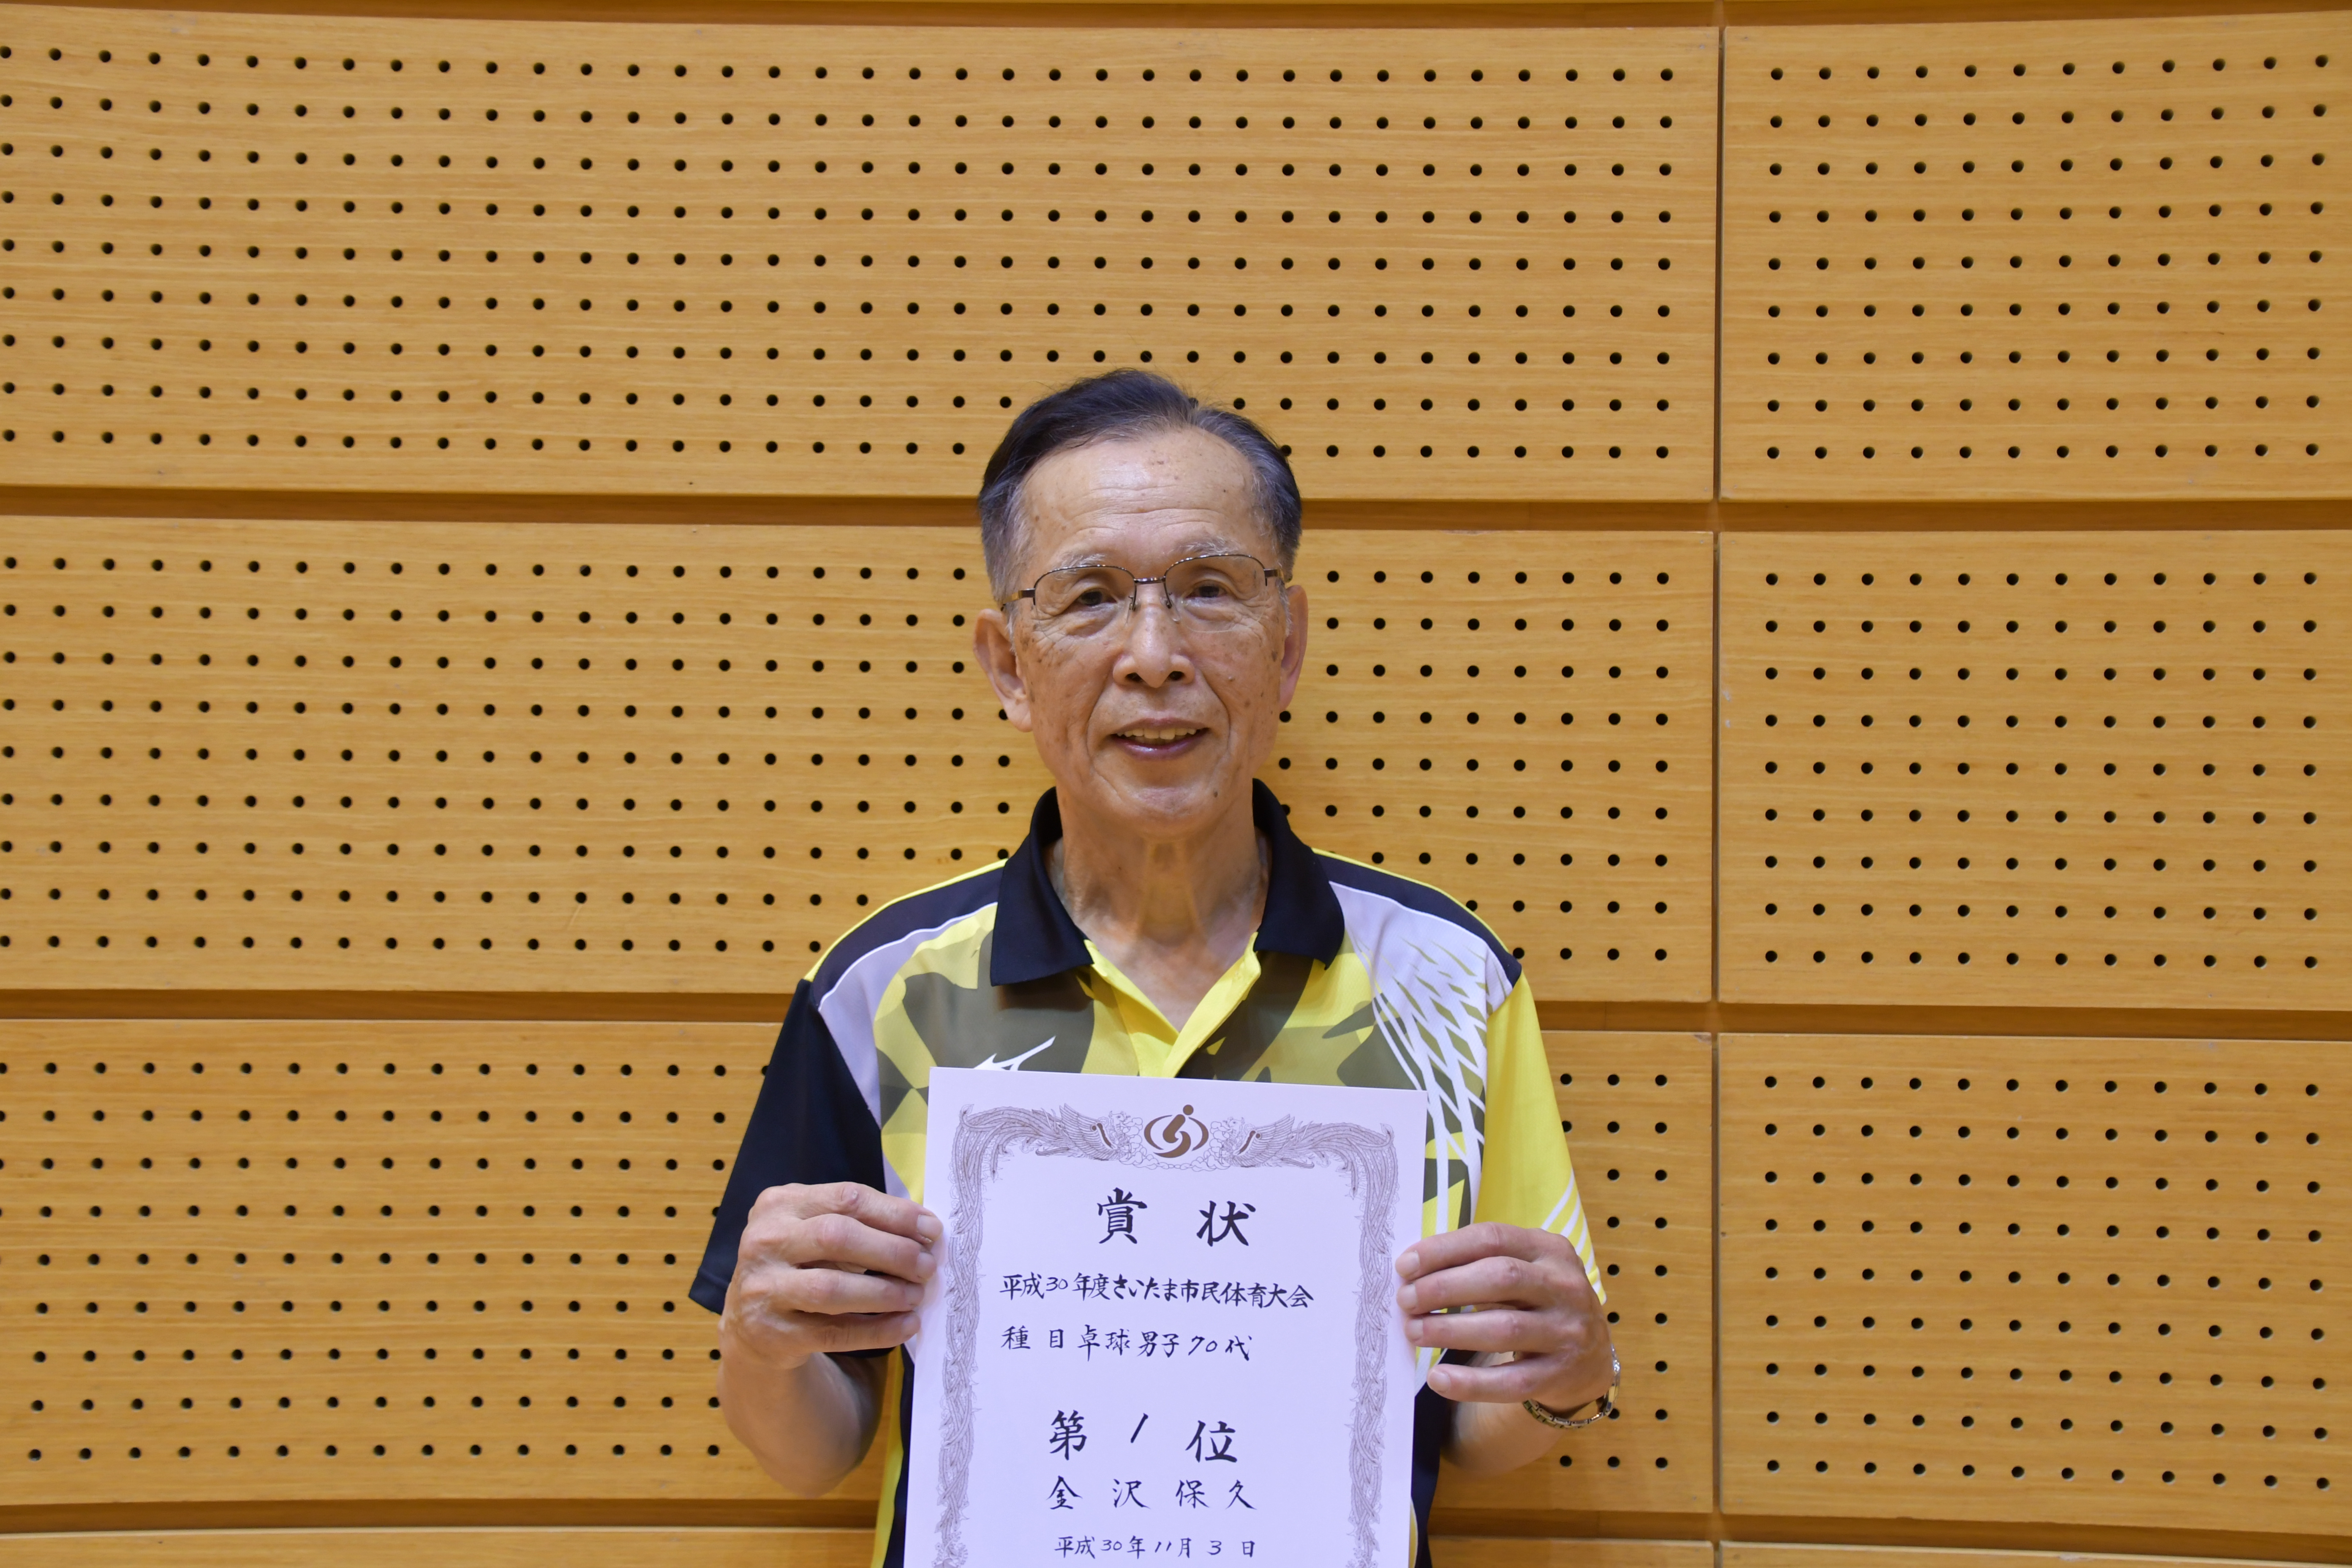 賞状
平成30年度さいたま市民体育大会
種目卓球男子70代
第1位
金沢保久
平成30年11月3日